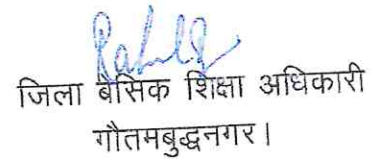 जिला बेसिक शिक्षा अधिकारी
गौतमबुद्धनगर।